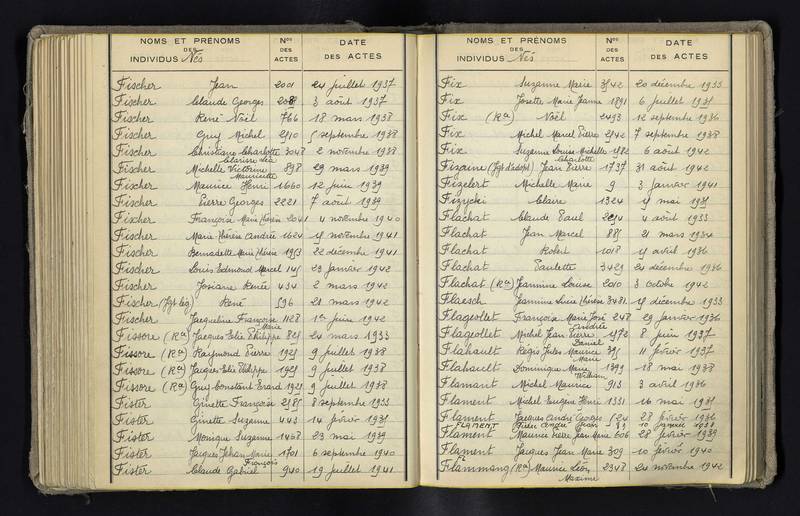 NOMS ET PRÉNOMS DES INDIVIDUS Nés | Nos DES ACTES | DATE DES ACTES
Fischer Jean 2001 24 juillet 1937
Fischer Claude Georges 208 3 août 1937
Fischer René Noël 766 18 mars 1938
Fischer Guy Michel 2510 5 septembre 1938
Fischer Christiane Charlotte 3048 2 novembre 1938
Clarisse Léa
Fischer Michelle Victorine 898 29 mars 1939
Mauricette
Fischer Maurice Henri 1660 12 juin 1939
Fischer Pierre Georges 2221 7 août 1939
Fischer Françoise Marie Thérèse 2041 4 novembre 1940
Fischer Marie Thérèse Andrée 1624 5 novembre 1941
Fischer Bernadette Marie Thérèse 1953 22 décembre 1941
Fischer Louis Edmond Marcel 145 23 janvier 1942
Fischer Josiane Renée 434 2 mars 1942
Fischer (Jgt lég) René 596 21 mars 1942
Fischer Jacqueline Françoise 1128 1er juin 1942
Marie
Fissore (Ra) Jacques Elie Philippe 825 24 mars 1933
Fissore (Ra) Raymond Pierre 1925 9 juillet 1938
Fissore (Ra) Jacques Elie Philippe 1925 9 juillet 1938
Fissore (Ra) Guy Constant Erard 1925 9 juillet 1938
Fister Ginette Françoise 2585 8 septembre 1933
Fister Ginette Suzanne 443 14 février 1935
Fister Monique Suzanne 1408 23 mai 1939
Fister Jacques Jehan Marie 1701 6 septembre 1940
François
Fister Claude Gabriel 940 19 juillet 1941
NOMS ET PRÉNOMS DES INDIVIDUS Nés | Nos DES ACTES | DATE DES ACTES
Fix Suzanne Marie 3542 20 décembre 1933
Fix Josette Marie Jeanne 1891 6 juillet 1935
Fix (Ra) Noël 2493 12 septembre 1936
Fix Michel Marcel Pierre 2542 7 septembre 1938
Fix Suzanne Louise Michelle 1582 6 août 1942
Charlotte
Fizaine (Jgt d'adopt) Jean Pierre 1737 31 août 1942
Fizelert Michelle Marie 9 3 janvier 1941
Fizycki Claire 1324 4 mai 1935
Flachat Claude Paul 2214 4 août 1933
Flachat Jean Marcel 885 21 mars 1934
Flachat Robert 1018 5 avril 1936
Flachat Paulette 3429 24 décembre 1936
Flachat (Ra) Jeannine Louise 2010 3 octobre 1942
Flaesch Jeannine Lucie Thérèse 3481 15 décembre 1933
Flageollet Françoise Marie José 248 29 janvier 1936
Andrée
Flageollet Michel Jean Pierre 1572 8 juin 1937
Daniel
Flahault Régis Jules Maurice 395 11 février 1937
Marie
Flahault Dominique Marie 1399 18 mai 1938
William
Flamant Michel Maurice 913 3 avril 1936
Flament Michel Eugène Henri 1331 16 mai 1935
Flament Jacques André Georges 524 28 février 1936
FLAMENT André Jean 83 10 janvier 1938
Flament Maurice Pierre Jean Marie 606 28 février 1939
Flament Jacques Jean Marie 309 10 février 1940
Flammang (Ra) Maurice Léon 2348 24 novembre 1942
Maxime